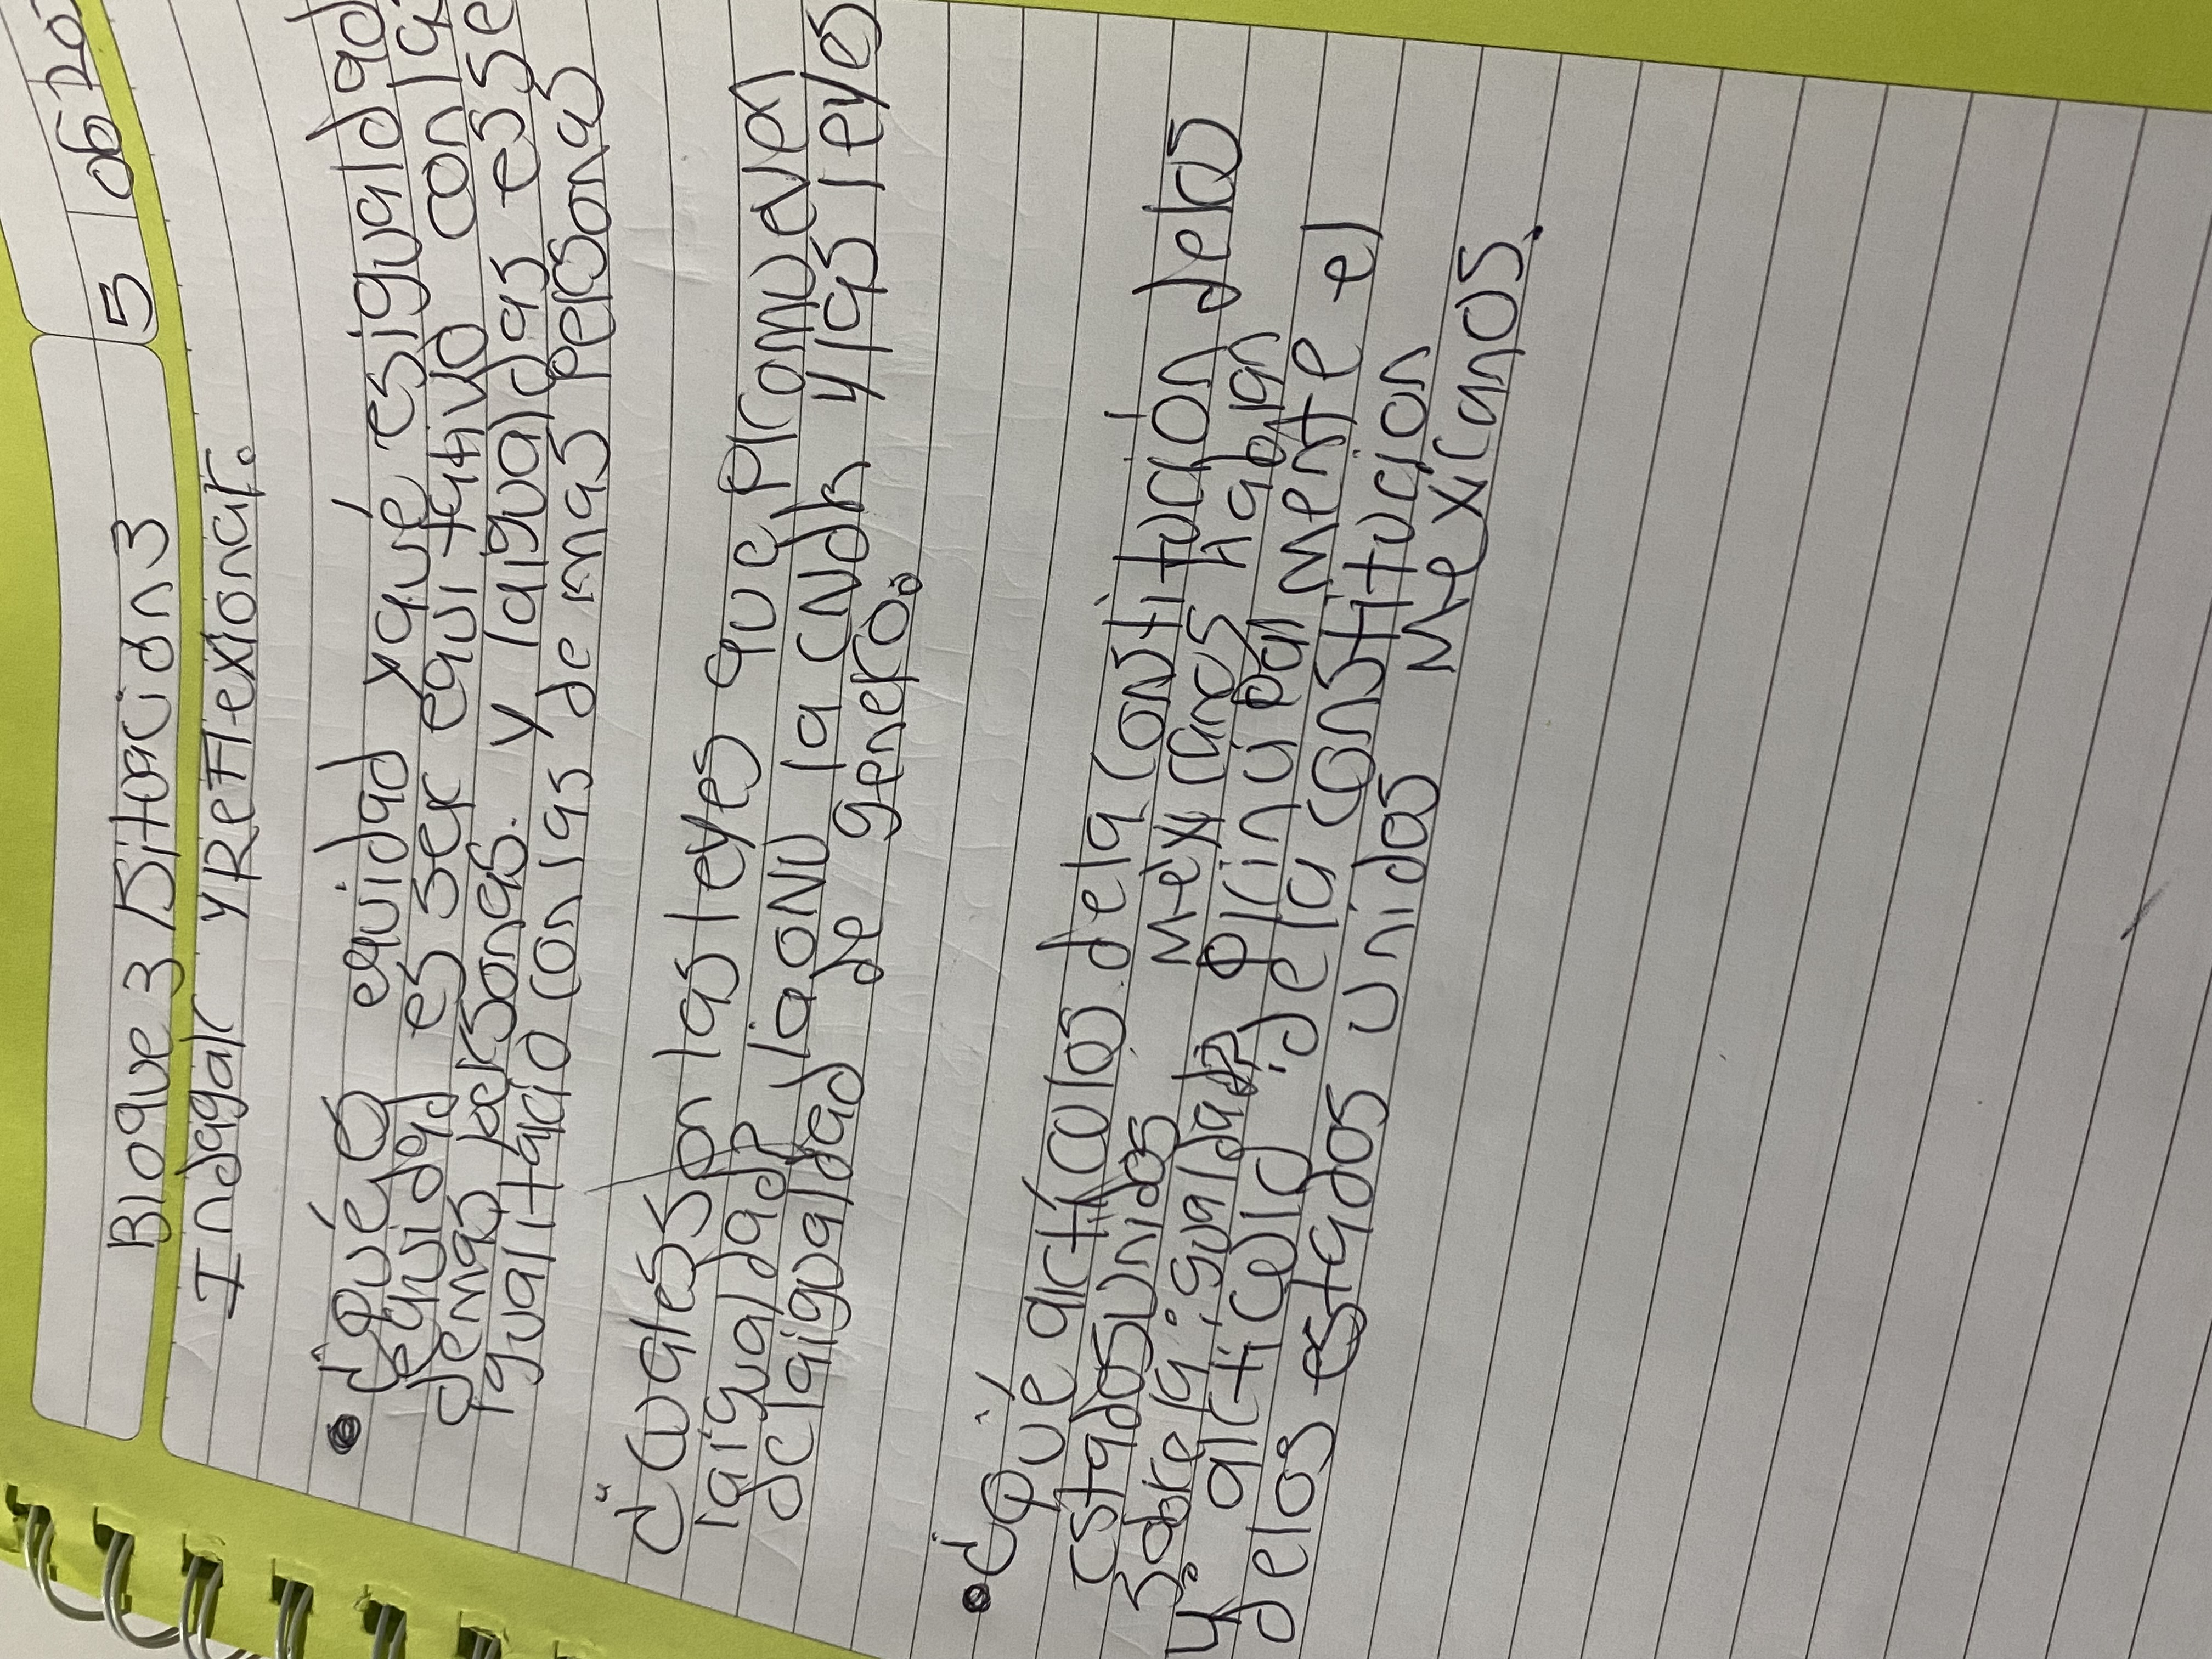 5 06 20
Bloque 3 Situación 3
Indagar y Reflexionar.
¿Qué es equidad y qué es igualdad
equidad es ser equitativo con las
demas personas. Y laigualdas es ser
igualitario con las demas personas
¿Cuales son las leyes que promueven
laigualdad? laONU la CNdh y las leyes
de laigualdad de genero.
¿Qué artículos dela Constitución delos
Estados Unidos mexicanos hablan
sobre la igualdad? Principal mente el
4° articulo de la constitucion
delos estados unidos mexicanos.